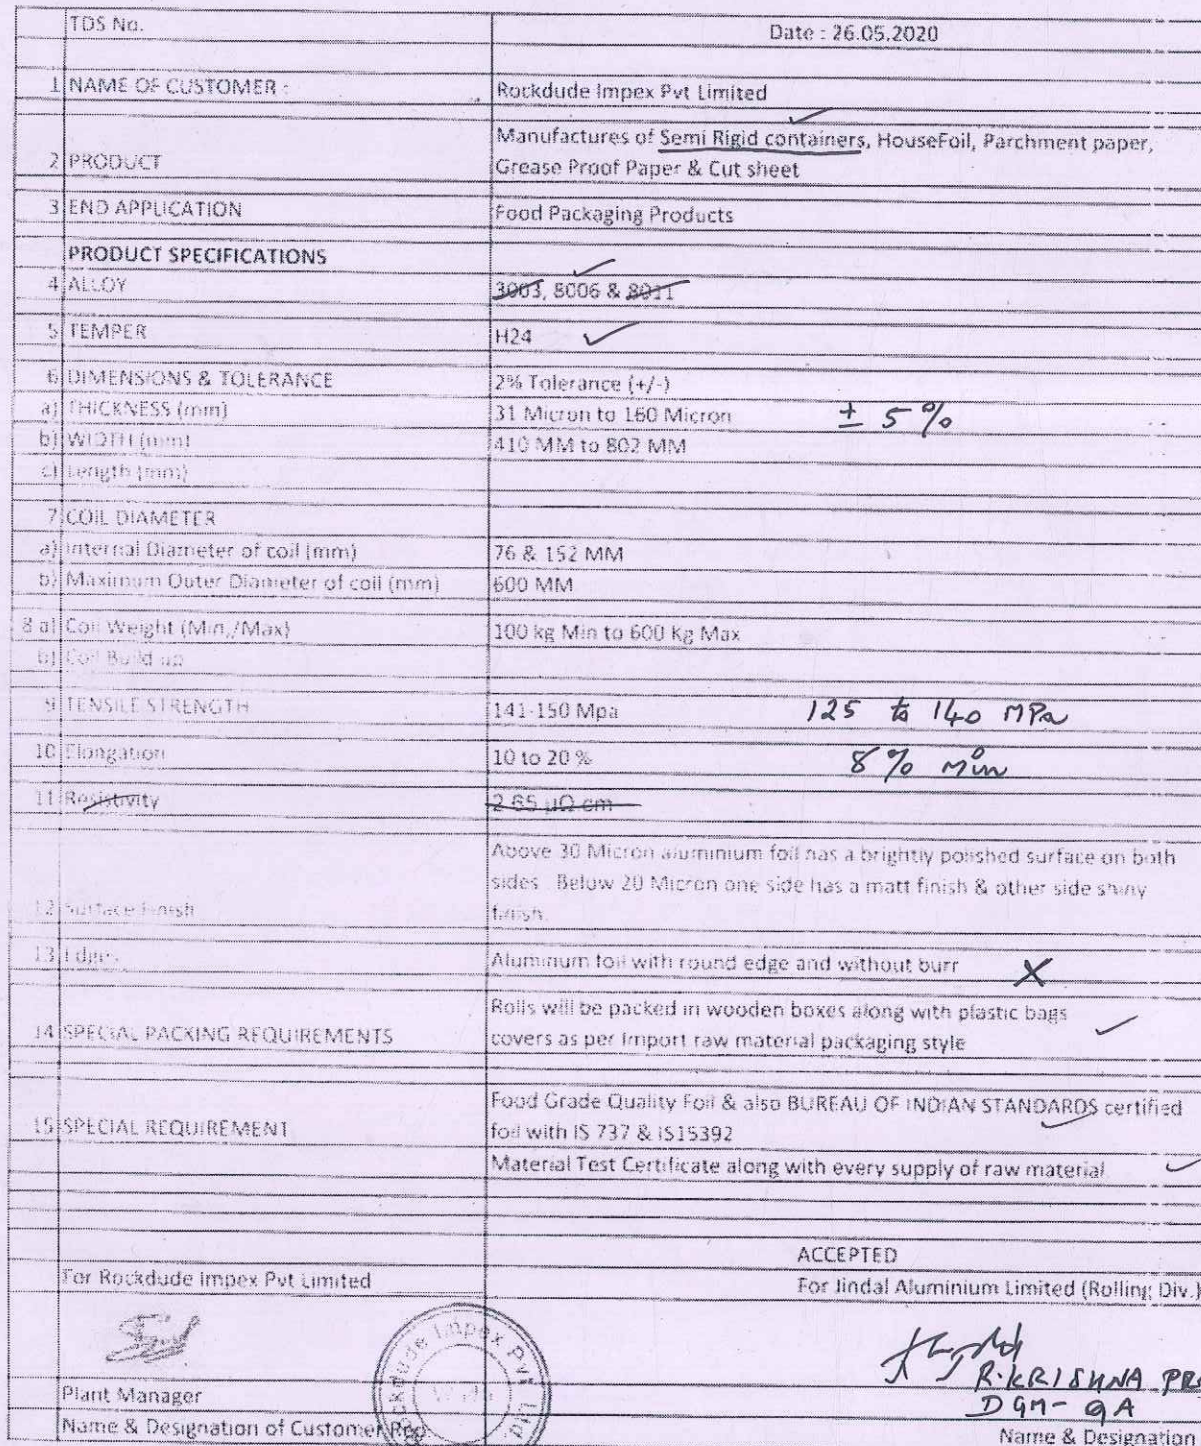 TDS No.
Date : 26.05.2020
1 NAME OF CUSTOMER :
Rockdude Impex Pvt Limited
Manufactures of Semi Rigid containers, HouseFoil, Parchment paper,
2 PRODUCT
Grease Proof Paper & Cut sheet
3 END APPLICATION
Food Packaging Products
PRODUCT SPECIFICATIONS
4 ALLOY
3003, 8006 & 8011
5 TEMPER
H24
6 DIMENSIONS & TOLERANCE
2% Tolerance (+/-)
a) THICKNESS (mm)
31 Micron to 160 Micron ± 5%
b) WIDTH (mm)
410 MM to 802 MM
c) Length (mm)
7 COIL DIAMETER
a) Internal Diameter of coil (mm)
76 & 152 MM
b) Maximum Outer Diameter of coil (mm)
600 MM
8 a) Coil Weight (Min,/Max)
100 kg Min to 600 Kg Max
b) Coil Build up
9 TENSILE STRENGTH
141-150 Mpa 125 to 140 MPa
10 Elongation
10 to 20 % 8% min
11 Resistivity
2.65 µΩ cm
Above 30 Micron aluminium foil has a brightly polished surface on both
sides. Below 20 Micron one side has a matt finish & other side shiny
12 Surface Finish
finish.
13 Edges
Aluminum foil with round edge and without burr X
Rolls will be packed in wooden boxes along with plastic bags
14 SPECIAL PACKING REQUIREMENTS
covers as per Import raw material packaging style
Food Grade Quality Foil & also BUREAU OF INDIAN STANDARDS certified
15 SPECIAL REQUIREMENT
foil with IS 737 & IS15392
Material Test Certificate along with every supply of raw material
ACCEPTED
For Rockdude Impex Pvt Limited
For Jindal Aluminium Limited (Rolling Div.)
Rockdude Impex Pvt Ltd
R. KRISHNA
Plant Manager
DGM-QA
Name & Designation of Customer
Name & Designation